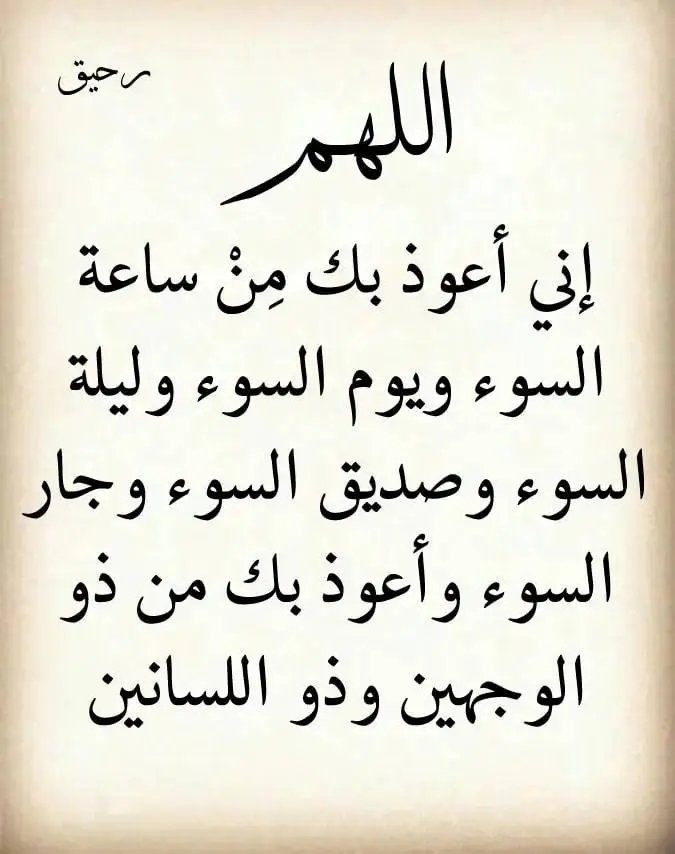 رحيق
اللهم
إني أعوذ بك مِنْ ساعة
السوء ويوم السوء وليلة
السوء وصديق السوء وجار
السوء وأعوذ بك من ذو
الوجهين وذو اللسانين